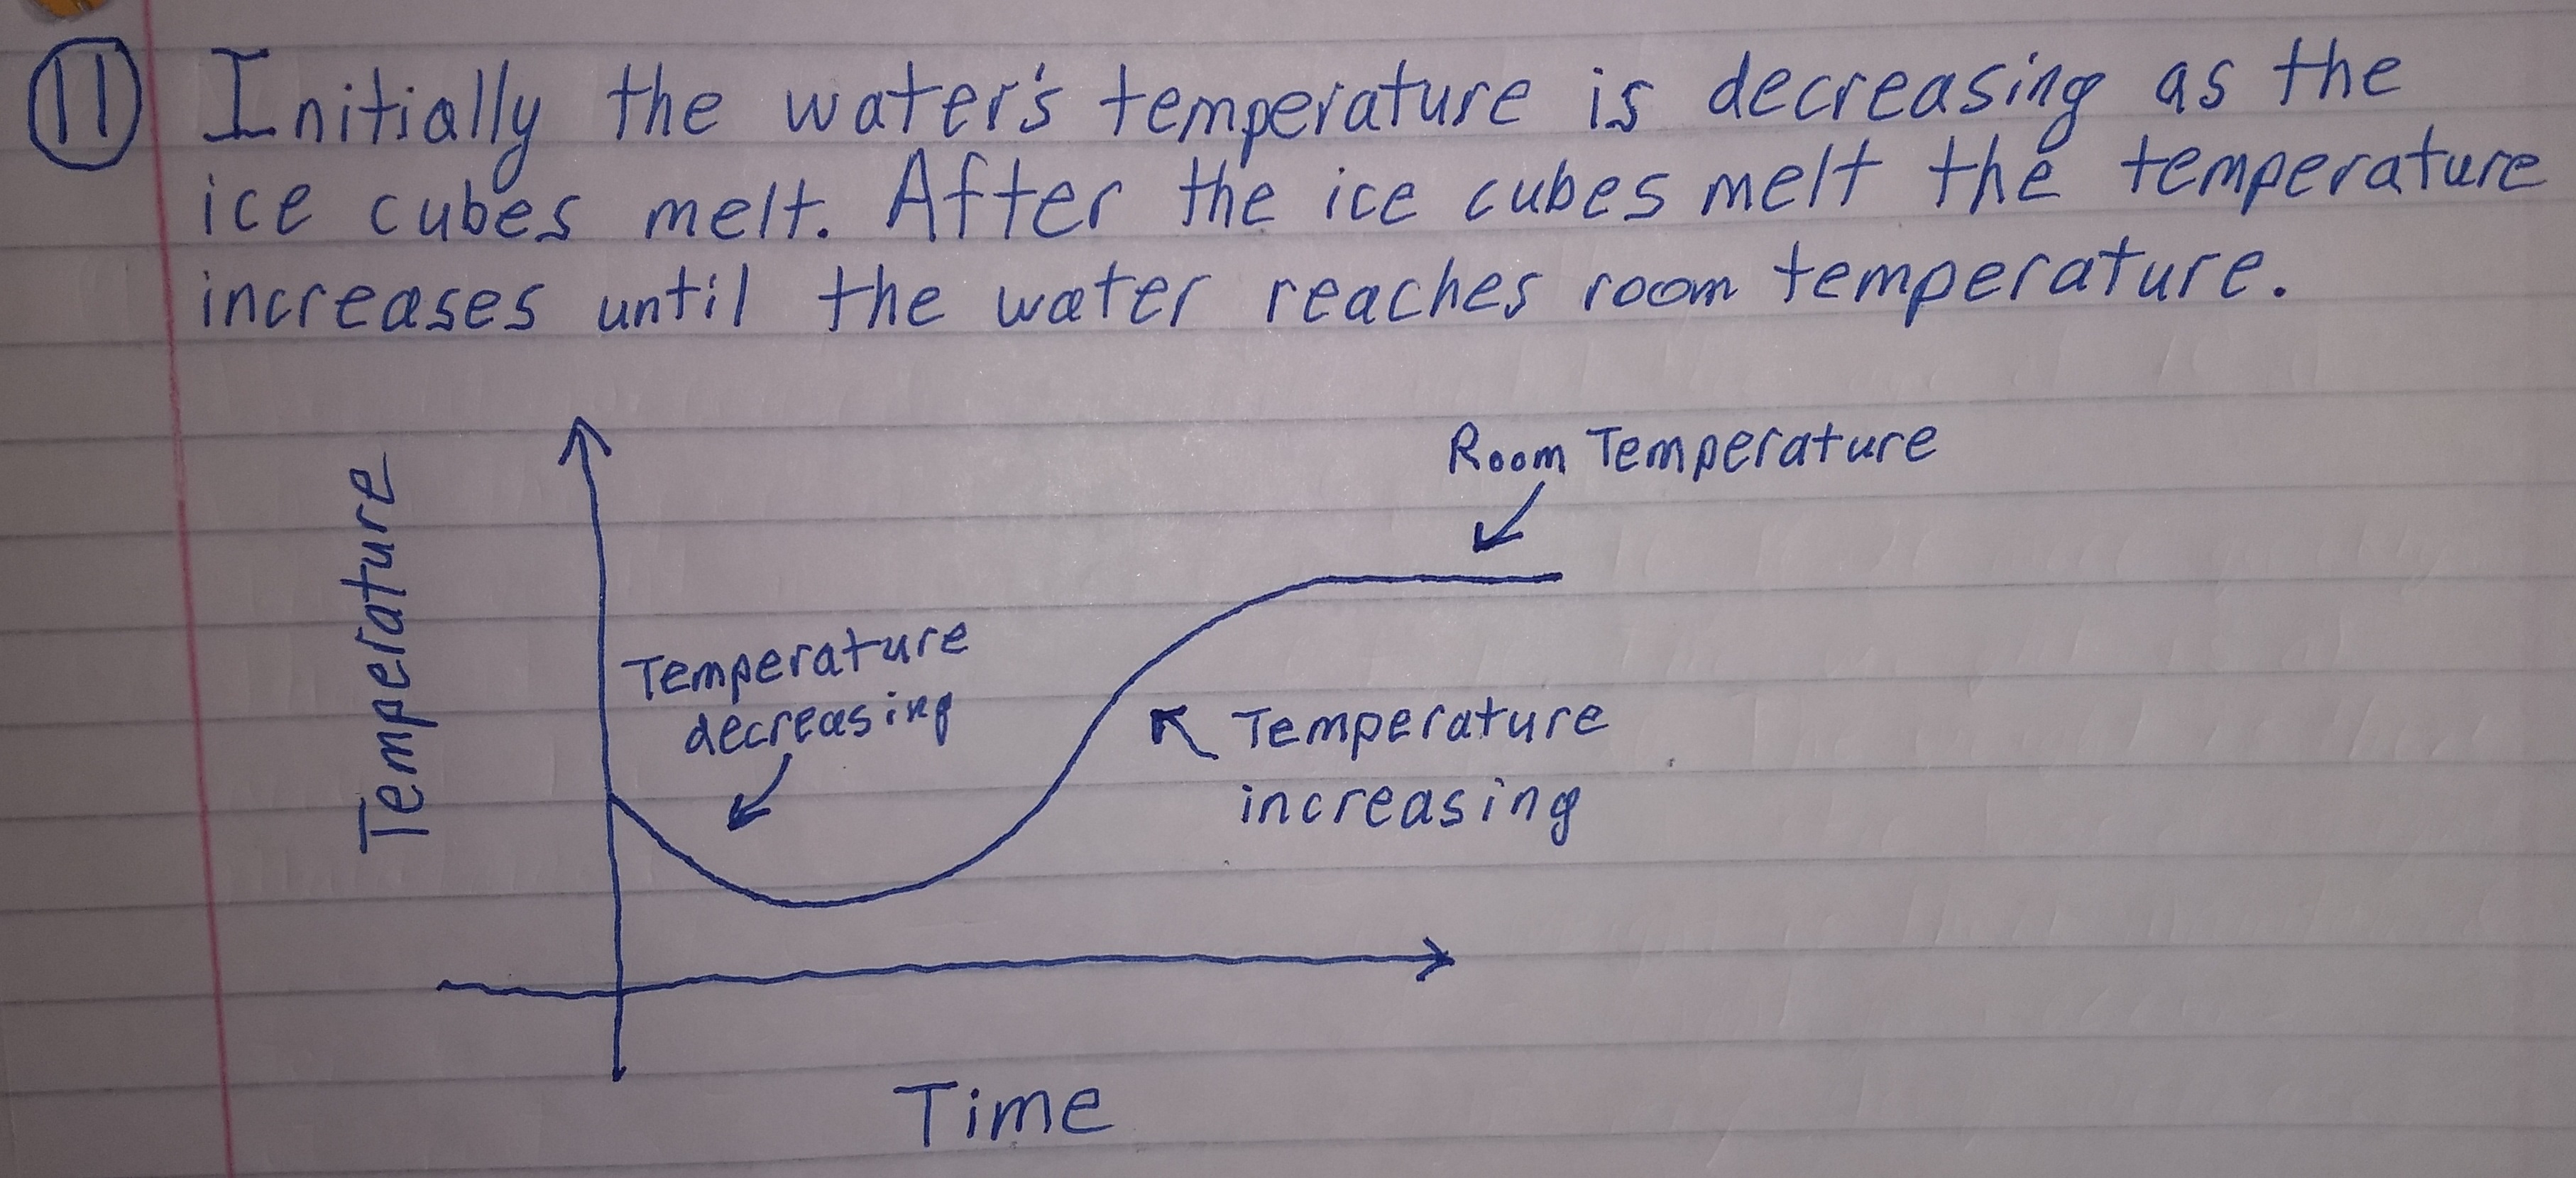 11 Initially the water's temperature is decreasing as the
ice cubes melt. After the ice cubes melt the temperature
increases until the water reaches room temperature.
Room Temperature
Temperature
Temperature
decreasing
Temperature
increasing
Time